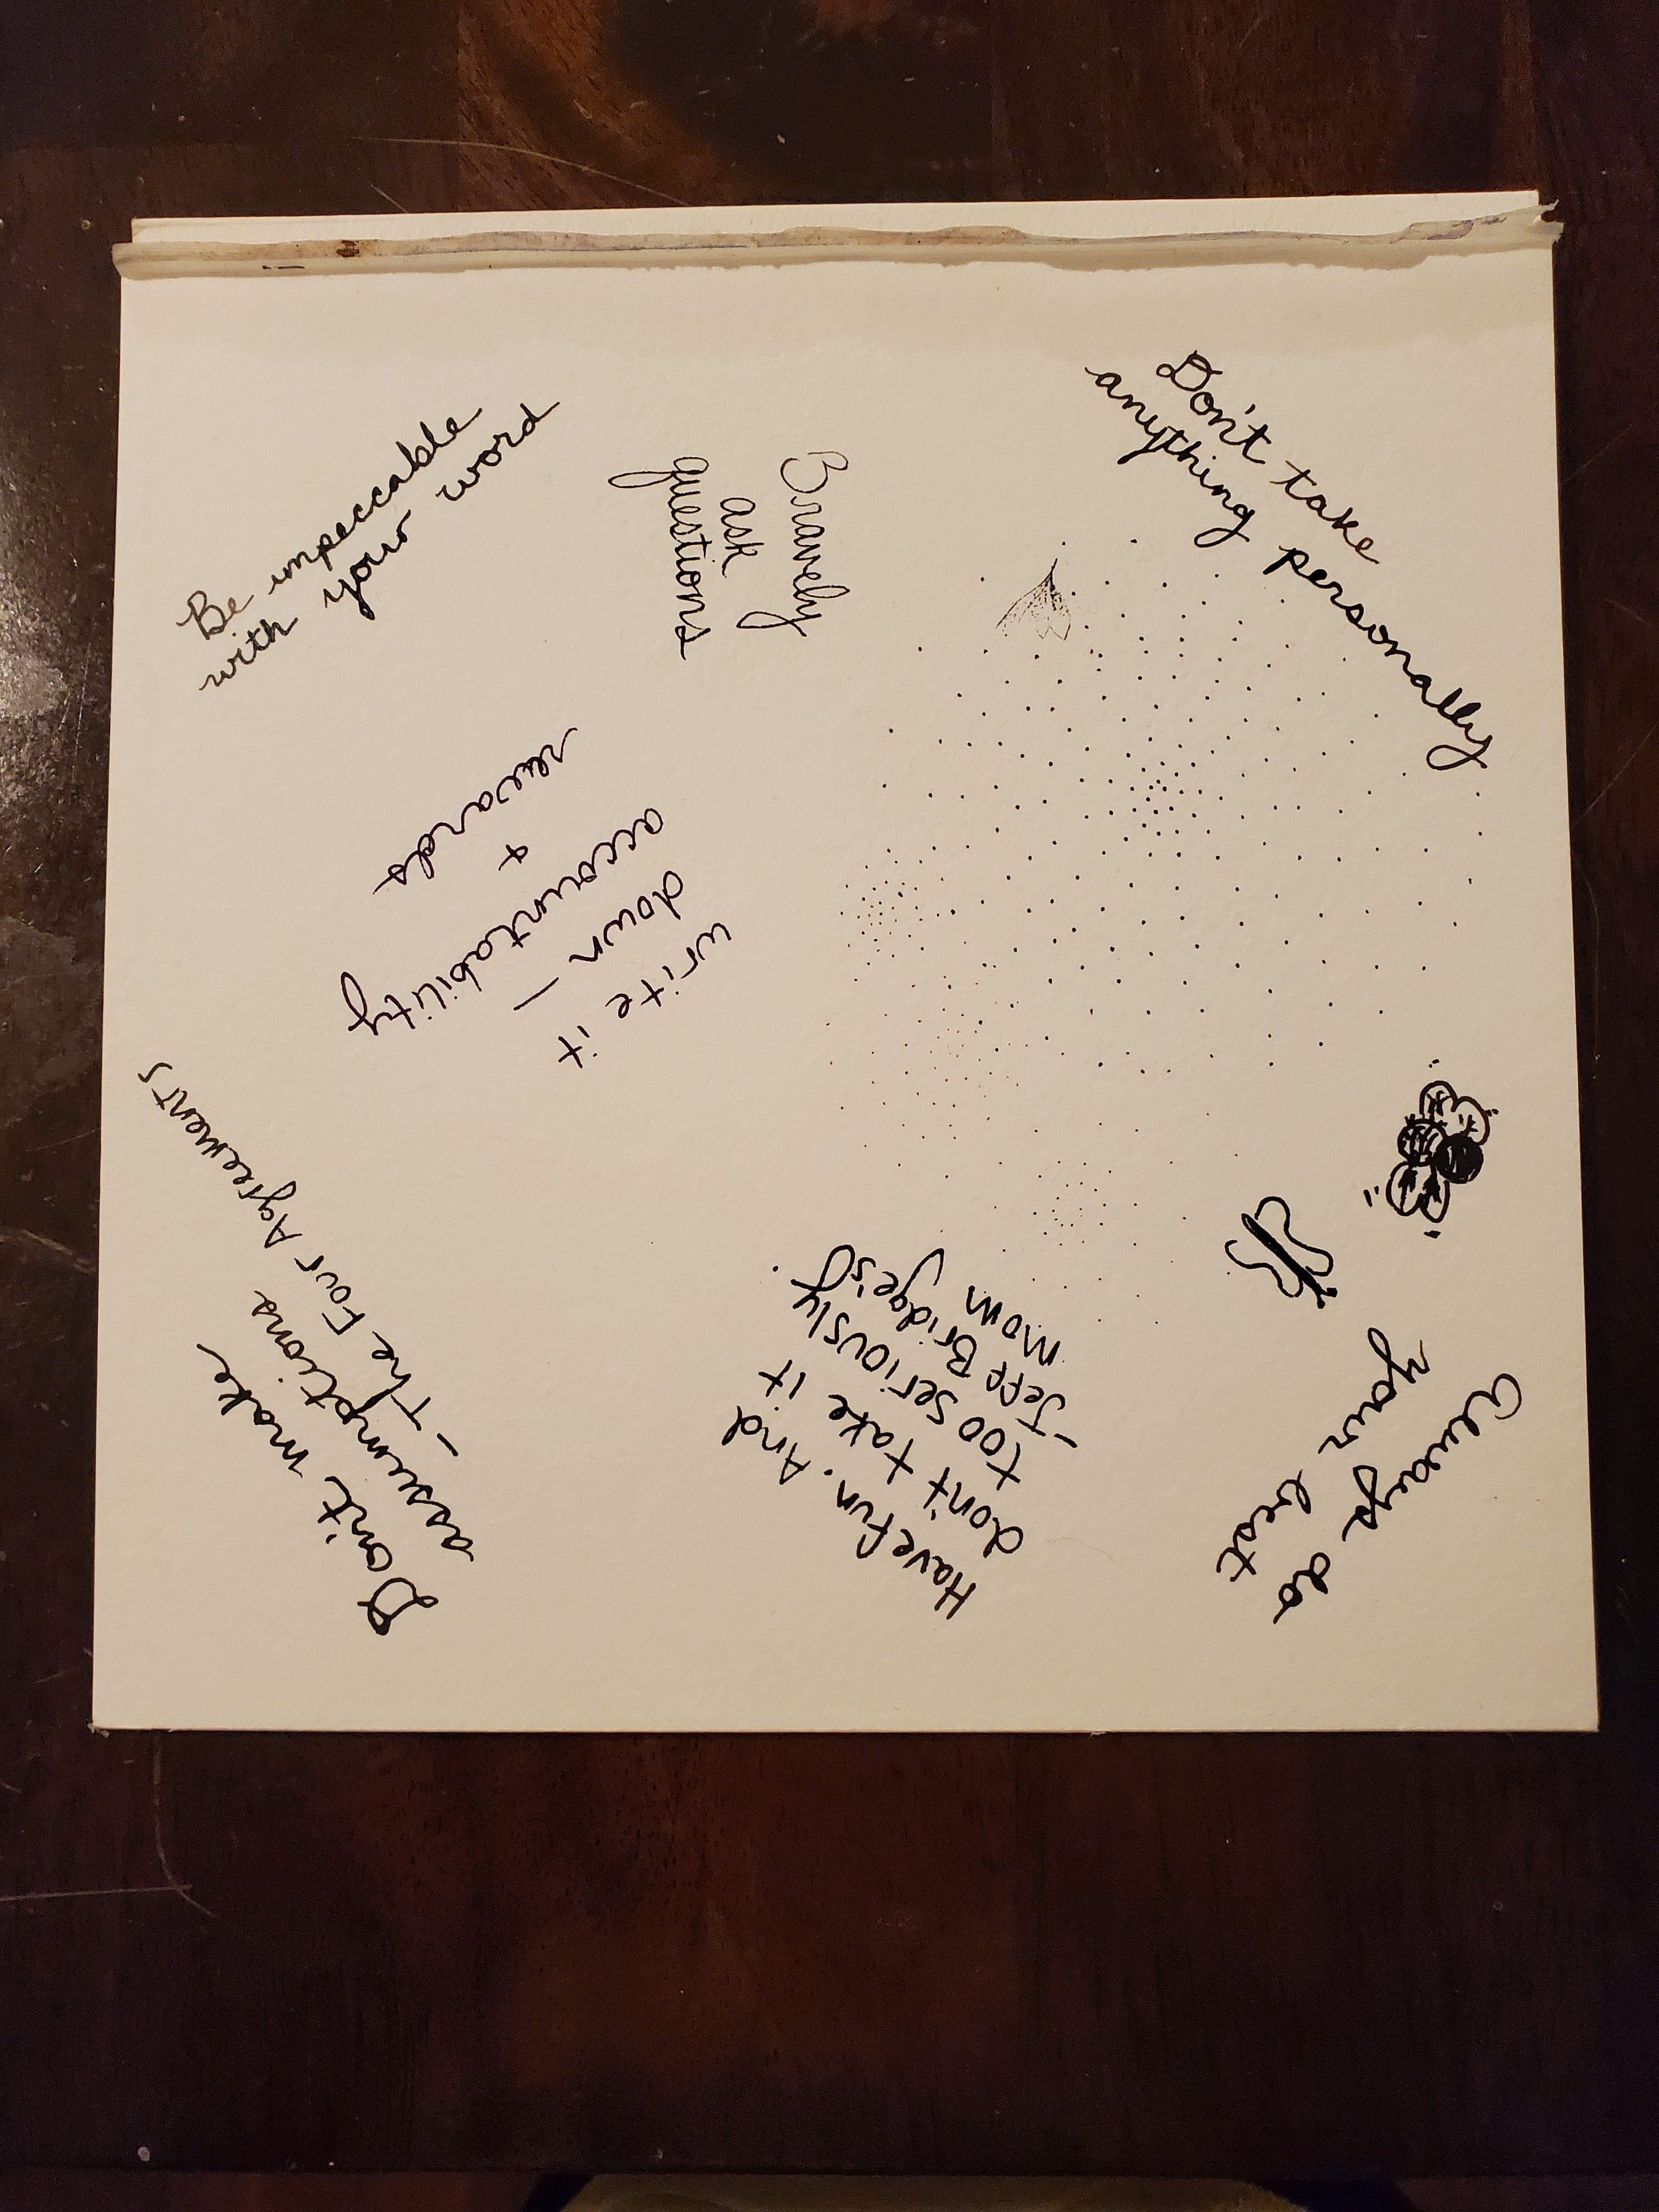 Be impeccable
with your word
Bravely
ask
questions
Don't take
anything personally
write it
down —
accountability
+
rewards
Don't make
assumptions
- The Four Agreements
Have fun. And
don't take it
too seriously.
- Jeff Bridge's
Mom
Always do
your best